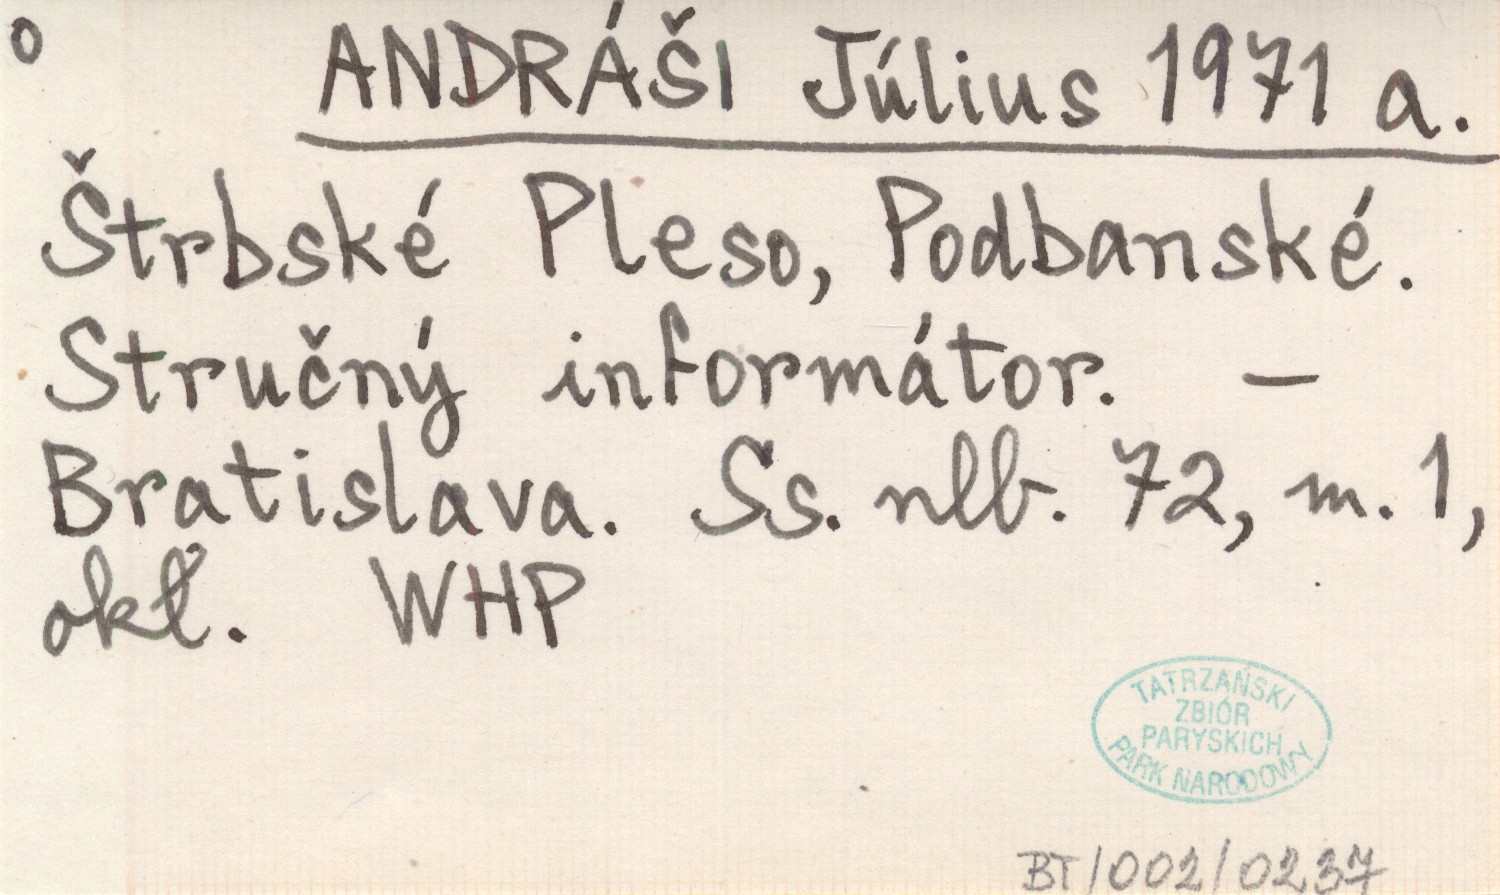 o
ANDRÁŠI Július 1971 a.
Štrbské Pleso, Podbanské.
Stručný informátor. –
Bratislava. Ss. nlb. 72, m. 1,
okł. WHP
TATRZAŃSKI
ZBIÓR
PARYSKICH
PARK NARODOWY
BT/002/0237